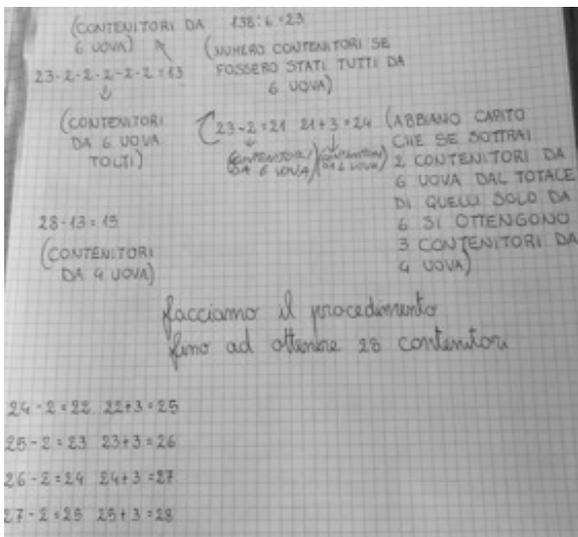 (CONTENITORI DA 6 UOVA)
138:6=23
(NUMERO CONTENITORI SE FOSSERO STATI TUTTI DA 6 UOVA)
23-2-2-2-2-2=13
(CONTENITORI DA 6 UOVA TOLTI)
23-2=21 21+3=24
(CONTENITORI DA 6 UOVA)
(CONTENITORI DA 4 UOVA)
(ABBIAMO CAPITO
CHE SE SOTTRAI
2 CONTENITORI DA
6 UOVA DAL TOTALE
DI QUELLI SOLO DA
6 SI OTTENGONO
3 CONTENITORI DA
4 UOVA)
28-13=15
(CONTENITORI
DA 4 UOVA)
facciamo il procedimento
fino ad ottenere 28 contenitori
24-2=22 22+3=25
25-2=23 23+3=26
26-2=24 24+3=27
27-2=25 25+3=28